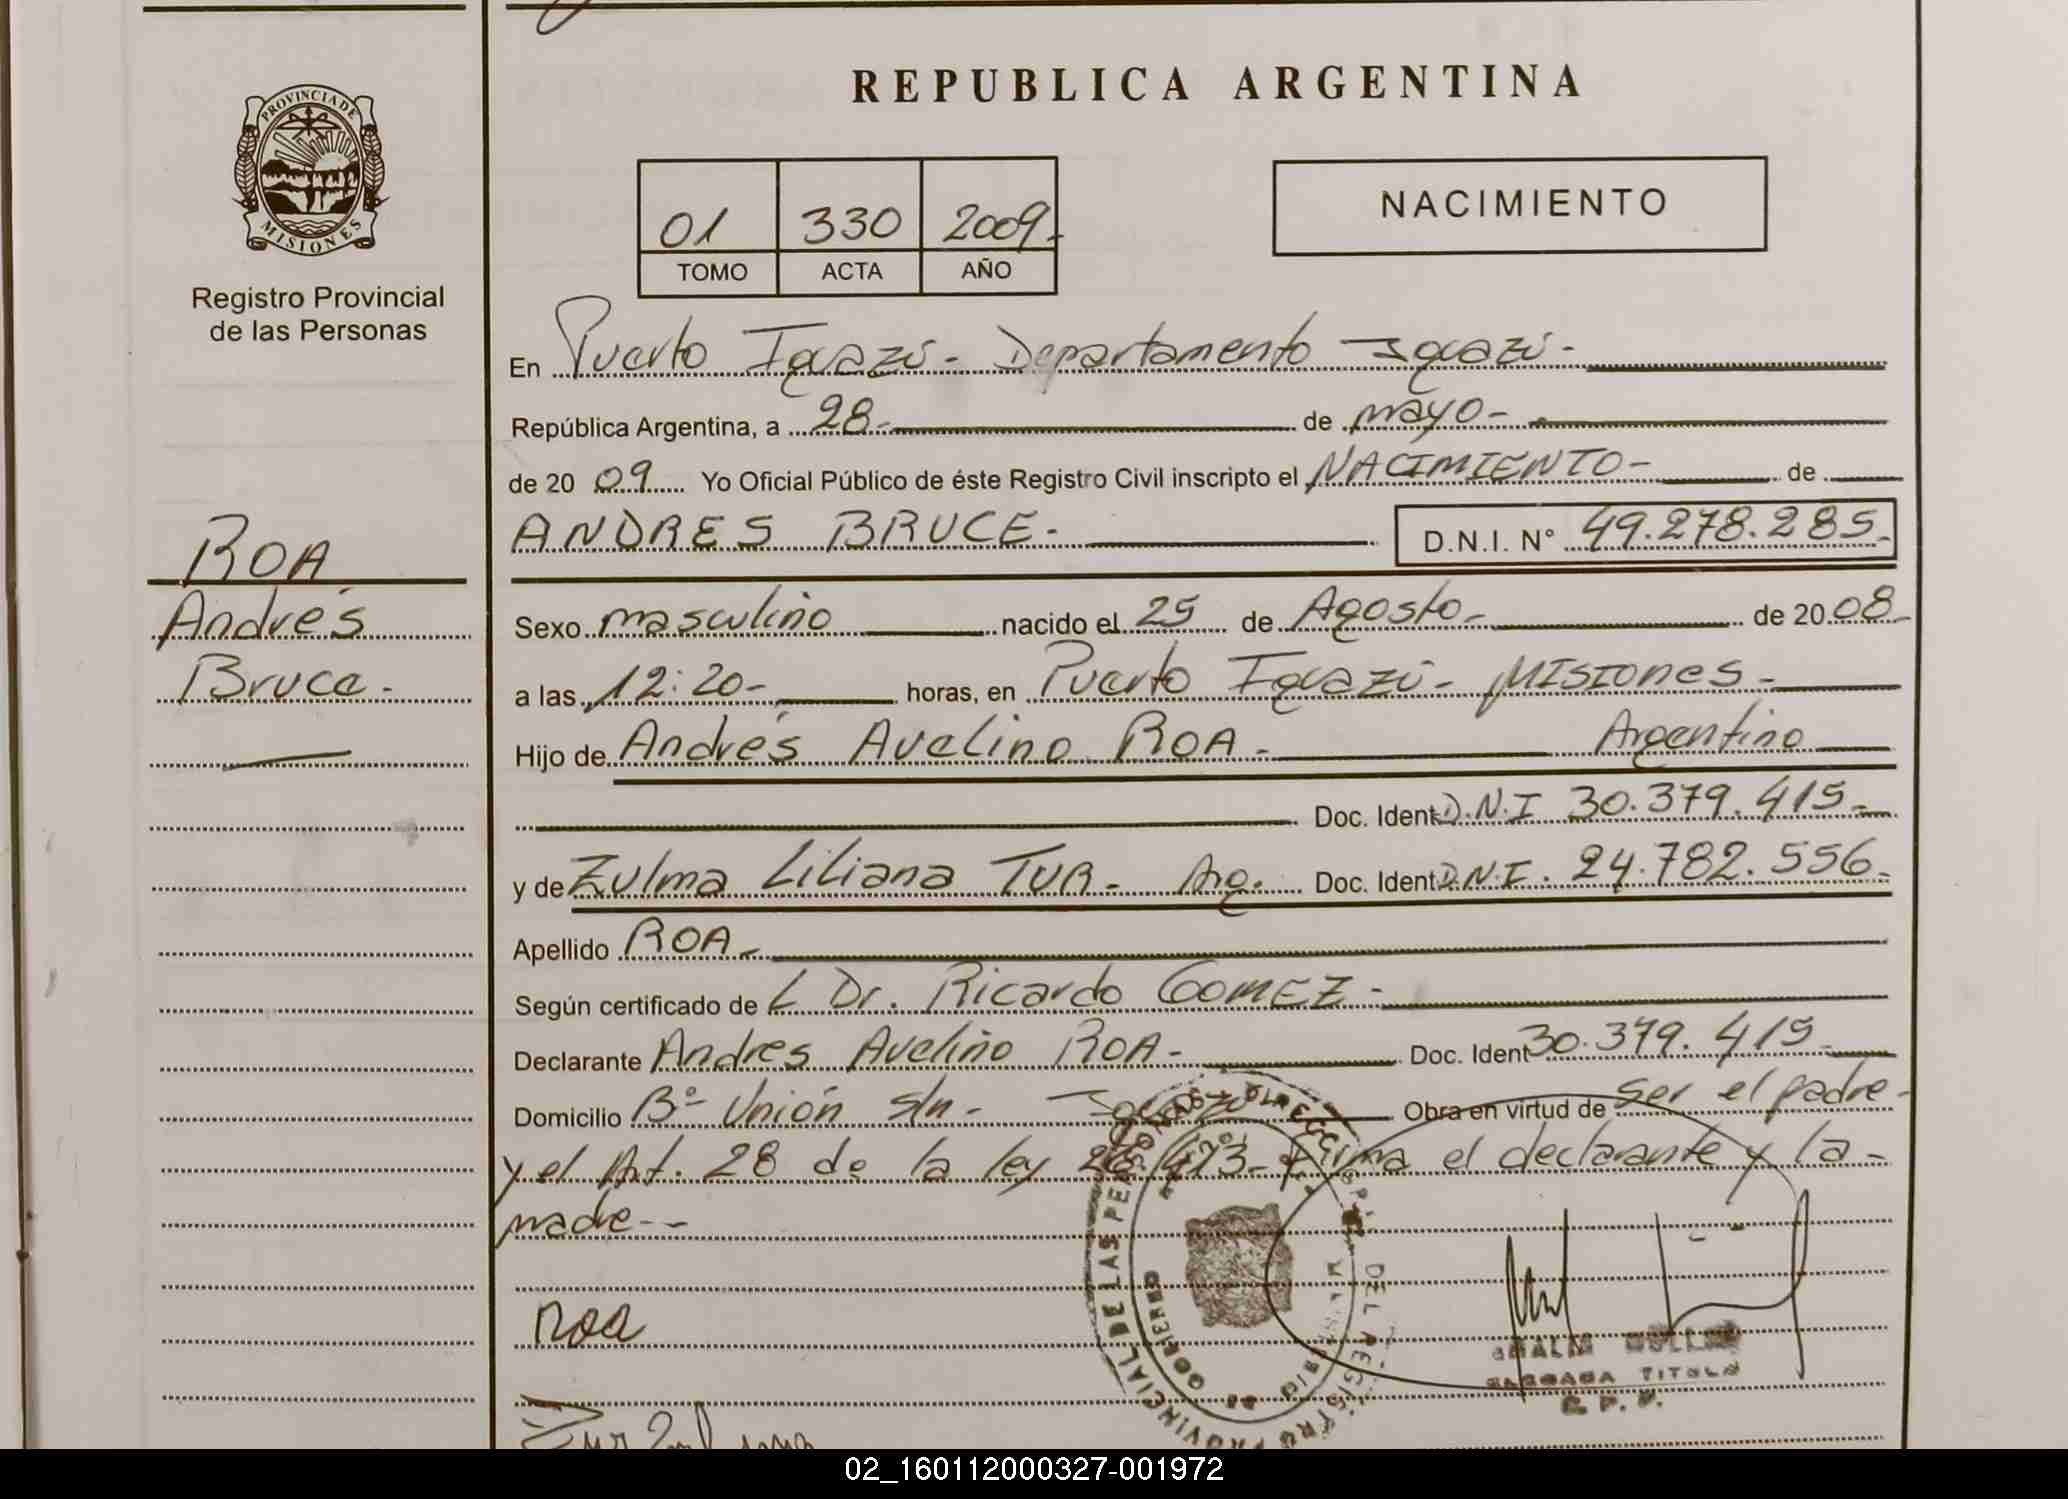 REPUBLICA ARGENTINA
PROVINCIA DE
MISIONES
Registro Provincial
de las Personas
01 330 2009-
TOMO ACTA AÑO
NACIMIENTO
En Puerto Iguazú- Departamento Iguazú-
República Argentina, a 28- de mayo-
de 2009 Yo Oficial Público de éste Registro Civil inscripto el NACIMIENTO- de
ANDRES BRUCE- D.N.I. N° 49.278.285-
ROA
Andrés
Bruce-
Sexo masculino nacido el 25 de Agosto- de 2008-
a las 12:20- horas, en Puerto Iguazú- MISIONES-
Hijo de Andrés Avelino ROA- Argentino
Doc. Ident D.N.I 30.379.415-
y de Zulma Liliana TUR- Arg. Doc. Ident D.N.I. 24.782.556-
Apellido ROA-
Según certificado de L Dr. Ricardo GOMEZ-
Declarante Andres Avelino ROA- Doc. Ident 30.379.415-
Domicilio B° Unión s/n- Iguazú Obra en virtud de ser el padre-
y el Art. 28 de la ley 26.413- Firma el declarante y la-
madre--
DIRECCION PROVINCIAL DEL REGISTRO PROVINCIAL DE LAS PERSONAS
MINISTERIO DE GOBIERNO
Roa
TITULAR
R. P. P.
02_160112000327-001972